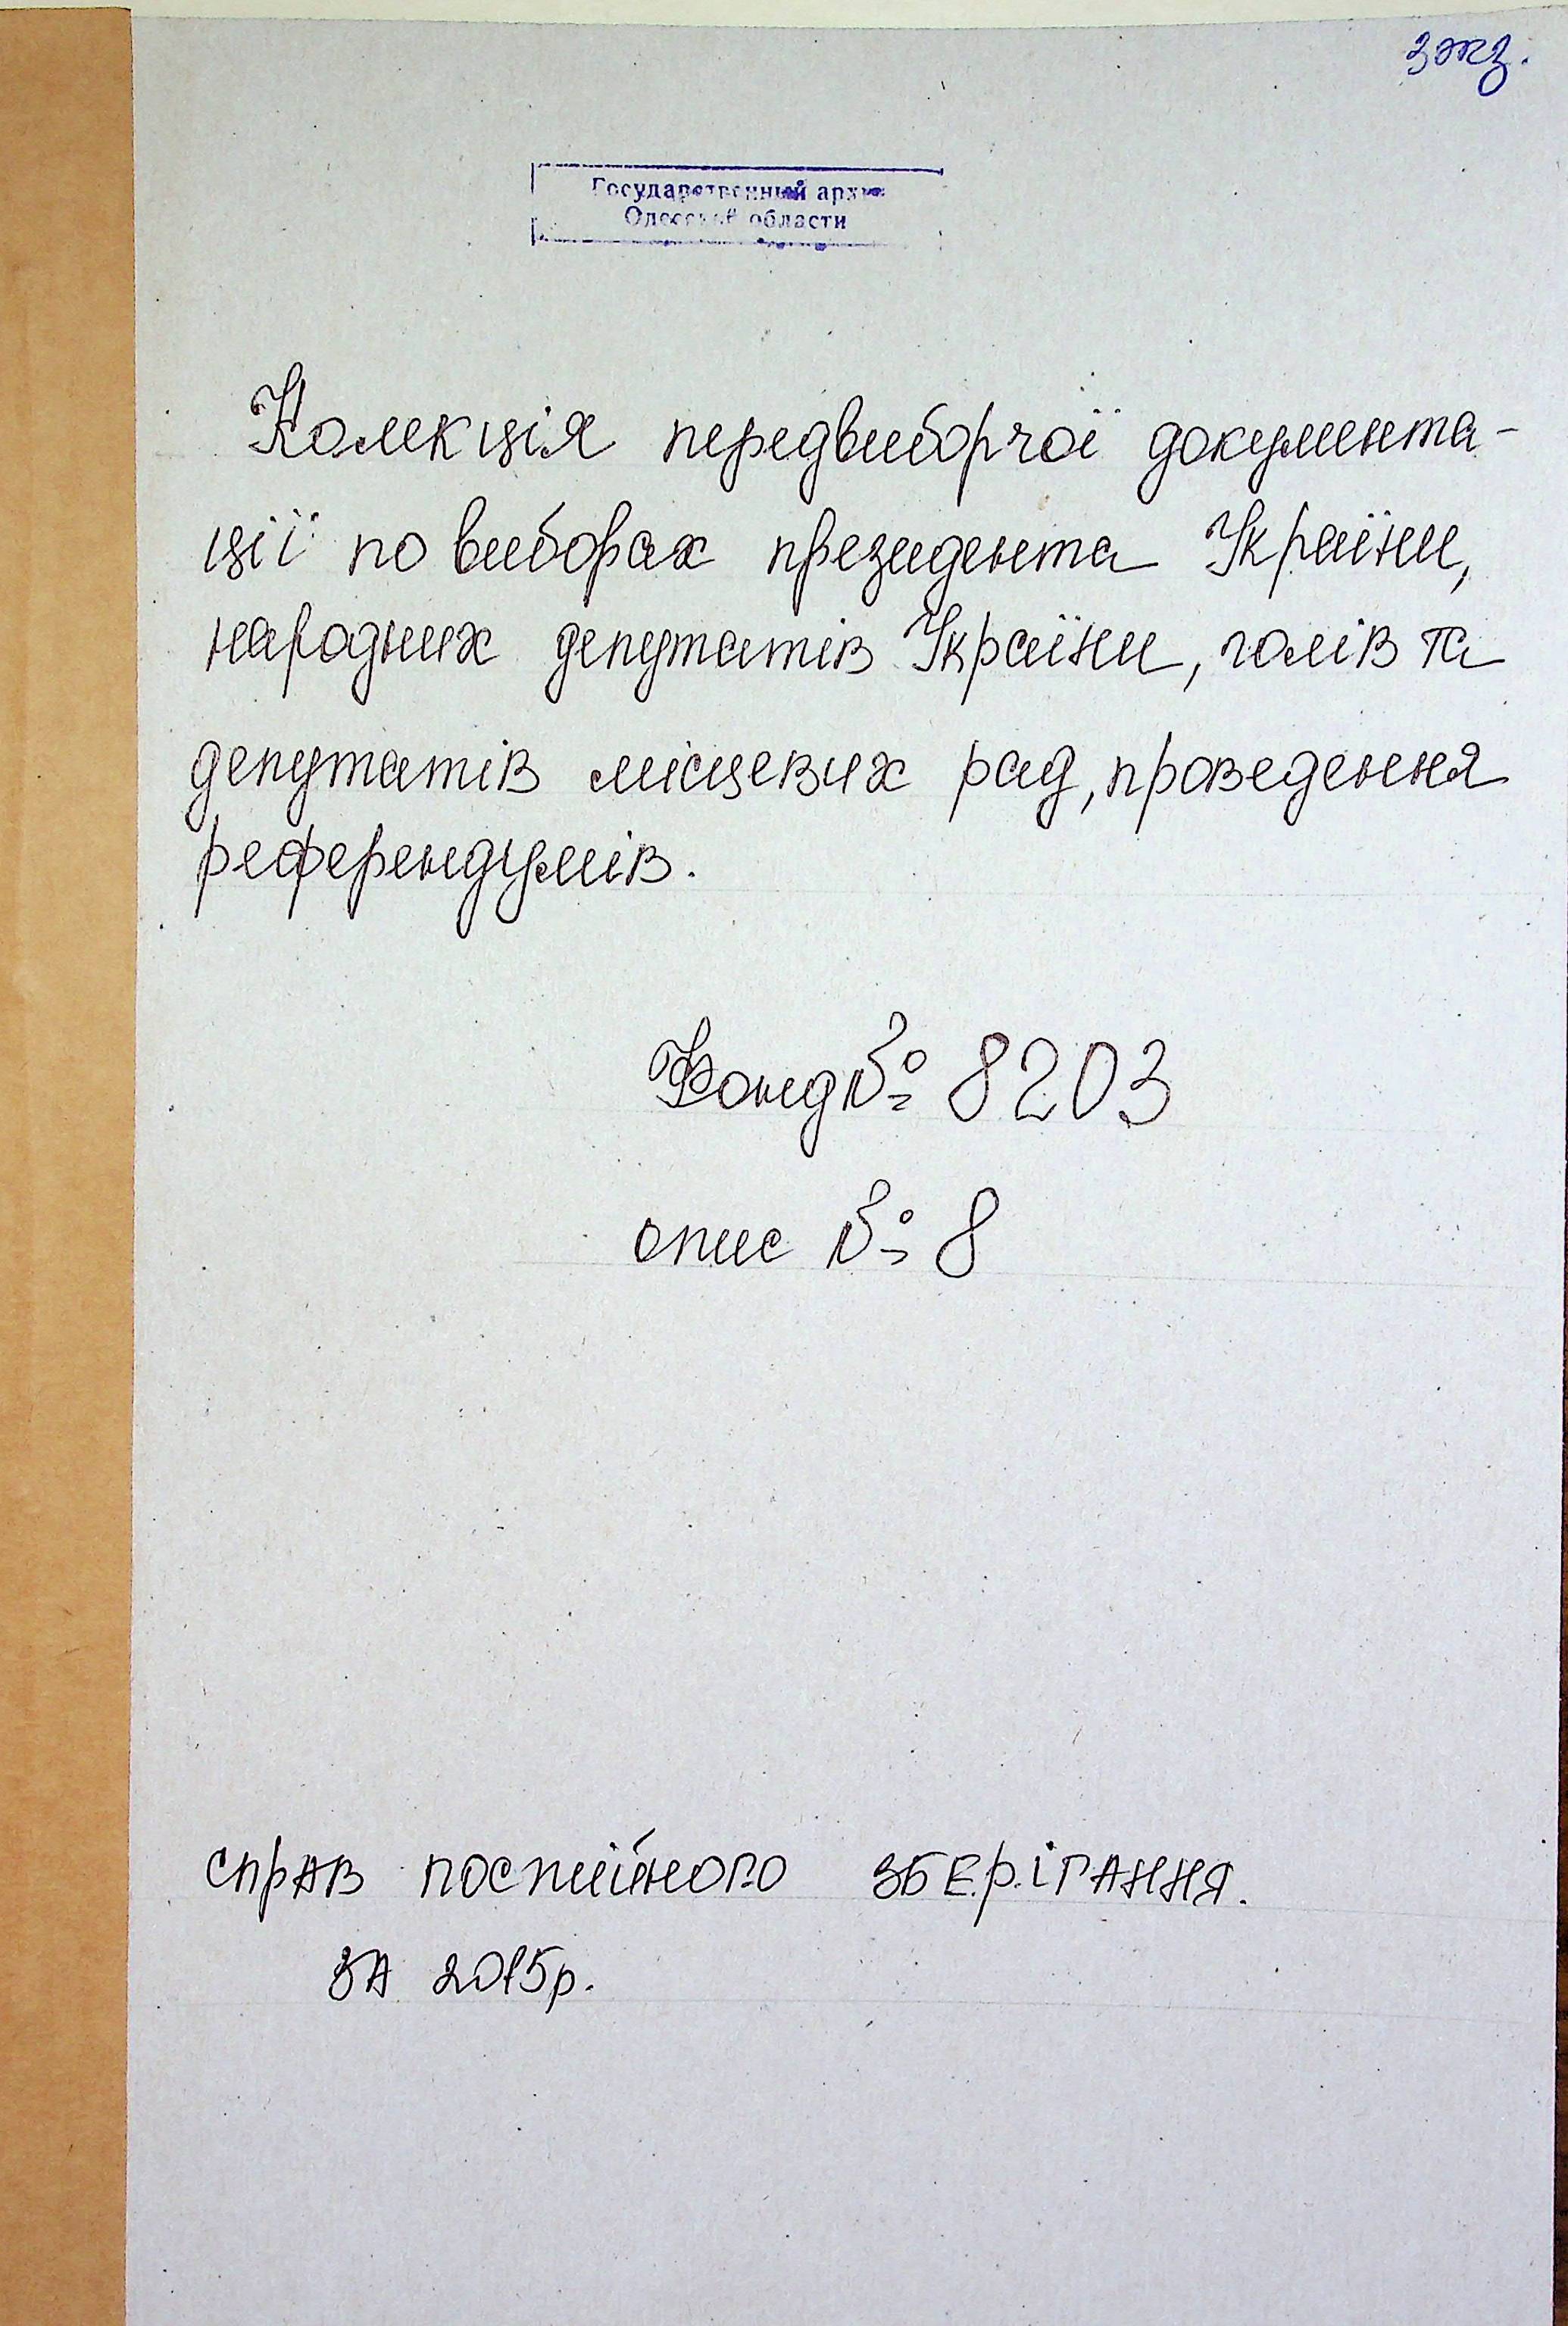 3 экз.
Государственный архив
Одесской области
Колекція передвиборчої документа-
ції по виборах президента України,
народних депутатів України, голів та
депутатів місцевих рад, проведення
референдумів.
Фонд № 8203
опис № 8
справ постійного зберігання.
за 2015р.